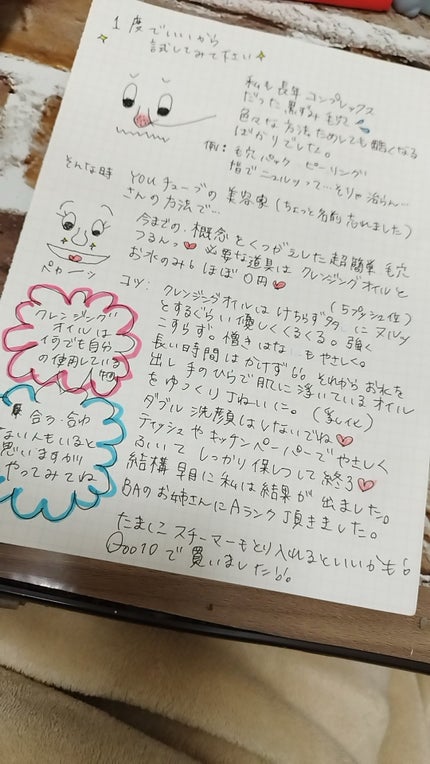 1度でいいから
試してみて下さい
私も長年コンプレックス
だった黒ずみ毛穴
色々な方法ためしても酷くなる
ばかりでした。
例: 毛穴パック ピーリング
指でニュルッって…そりゃ治らん…
そんな時 YOUチューブの美容家(ちょっと名前忘れました)
さんの方法で…
今までの概念をくつがえした超簡単毛穴
つるんっ 必要な道具はクレンジングオイルと
お水のみ ほぼ0円
ペカーッ
コツ: クレンジングオイルはけちらず (5プッシュ位)
多々にヌルッ
とするぐらい優しくくるくる。強く
こすらず。憎きはな もやさしく。
長い時間はかけず それからお水を
出し手のひらで肌に浮いているオイル
をゆっくり丁ねーいに。(乳化)
ダブル洗顔はしないでね
ティッシュやキッチンペーパーでやさしく
ふいて しっかり保しつして終了
結構早目に私は結果が出ました。
BAのお姉さんにAランク頂きました。
たまにスチーマーもとり入れるといいかも
Qoo10で買いました
クレンジング
オイルは
何でも自分
の使用している
物
合う合わ
ない人もいると
思いますが
やってみてね